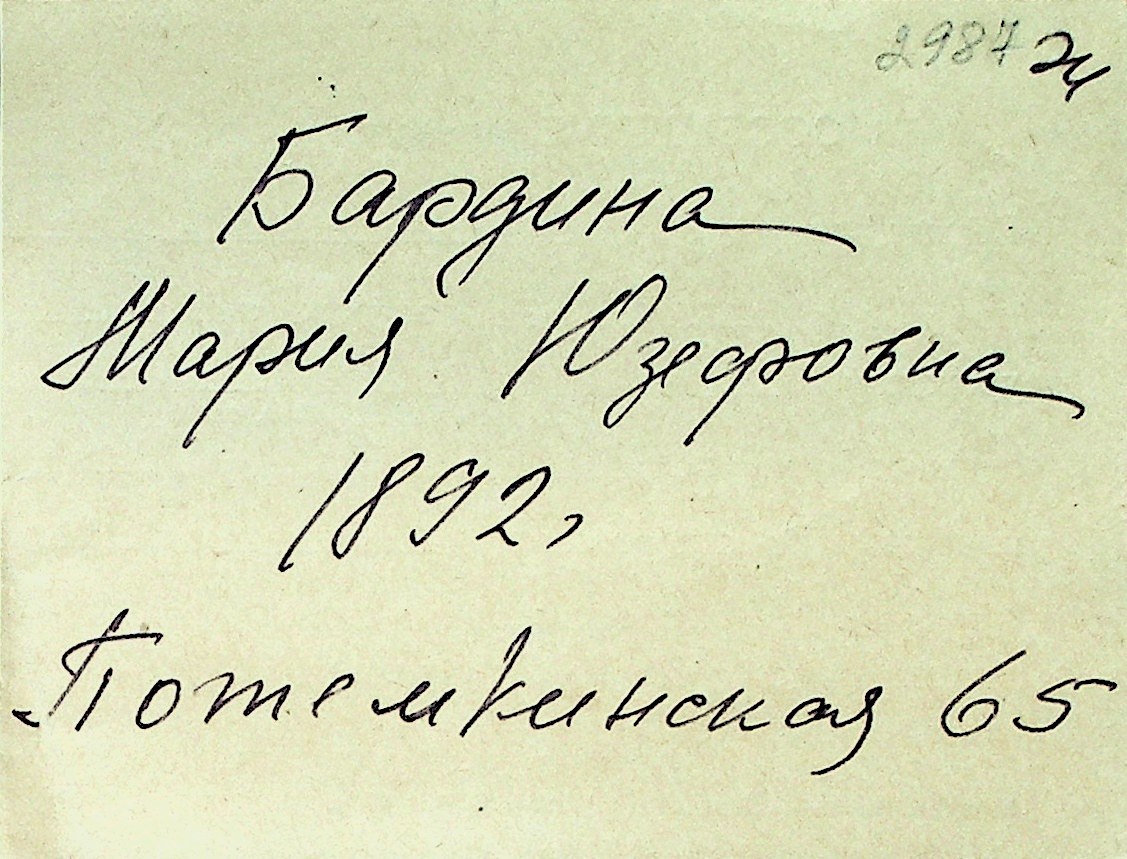 2987 ж
Бардина
Мария Юзефовна
1892,
Потемкинская 65